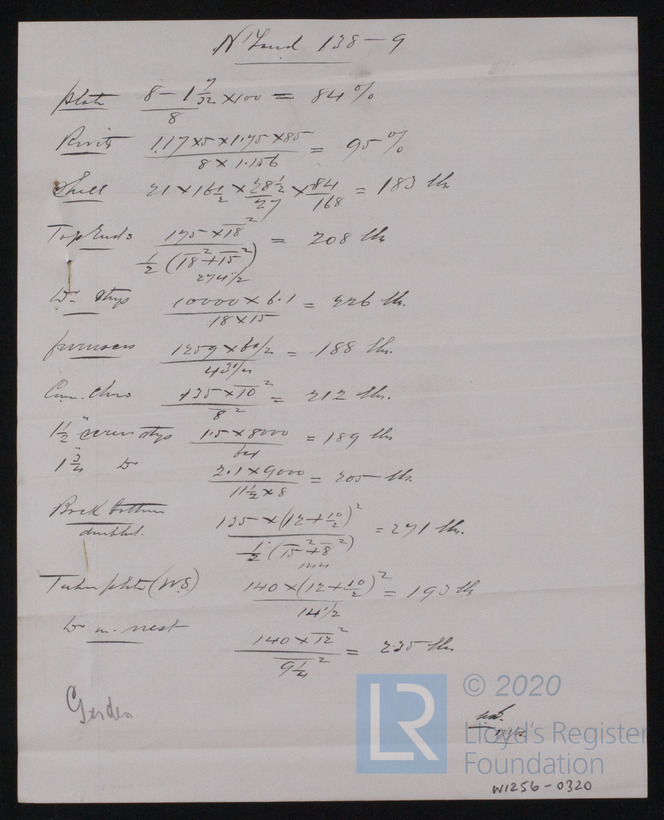 N'Land 138-9
Plate 8 - 1 7/32 × 100 / 8 = 84%
Rivets 1.17 × 5 × 1.75 × 85 / 8 × 1.156 = 95%
Shell 21 × 16 1/2 × 28 1/2 / 27 × 84 / 168 = 183 lbs
Top Ends 175 × 18² / 1/2 (18² + 15²) = 208 lbs
274 1/2
Do stays 10000 × 6.1 / 18 × 15 = 226 lbs.
furnaces 1259 × / = 188 lbs.
Com. Chrs 135 × 10² / 8² = 212 lbs.
1 1/2" screw stays 1.5 × 8000 / 64 = 189 lbs
1 3/4" Do 2.1 × 9000 / 11 1/2 × 8 = 205 lbs.
Back bottom 135 × (12 + 10/2)² / 1/2 (15² + 8²) = 271 lbs.
doubled. 144
Tube plate (W.S.) 140 × (12 + 10/2)² / 14 1/2 = 193 lbs
Do in nest 140 × 12² / 9 1/4² = 235 lbs.
© 2020
LR
Lloyd's Register
Foundation
W1256-0320